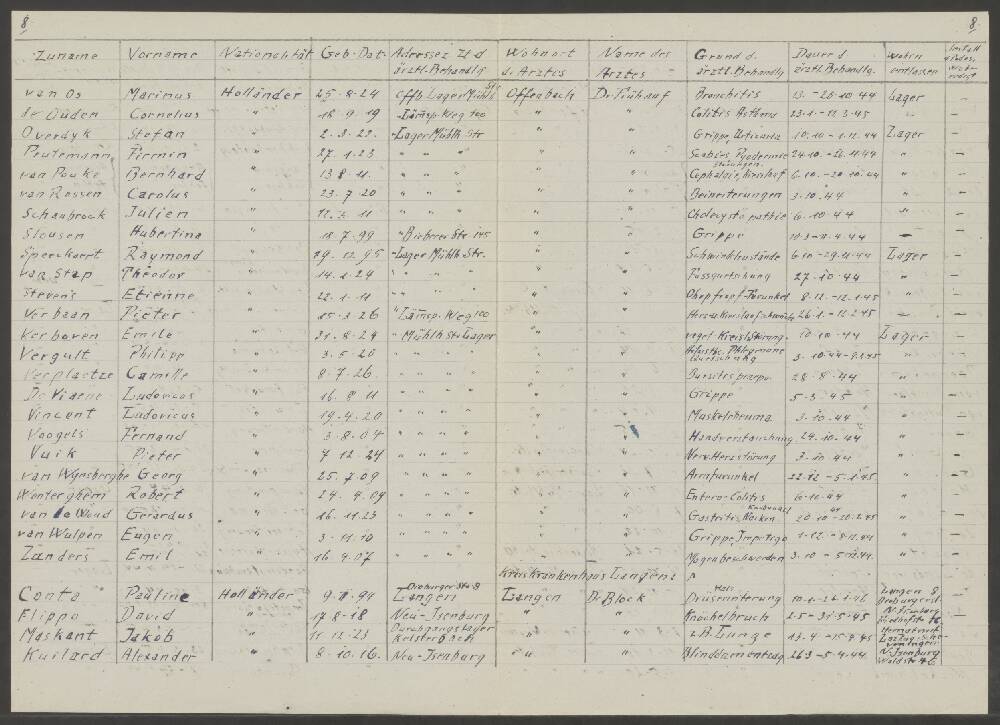 8. 8.
Zuname Vorname Nationalität Geb-Dat. Adresse z. Zt. d. ärztl. Behandlg Wohnort d. Arztes Name des Arztes Grund d. ärztl. Behandlg Dauer d. ärztl. Behandlg. wohin entlassen
van Os Marinus Holländer 25-8-24 Offb. Lager Mühlh Str Offenbach Dr. Fühauf Bronchitis 13.-20.10.44 Lager -
de Ouden Cornelius " 18.9.19 " Lämsp. Weg 100 " " Colitis Asthma 23.1.-11.3.45 " -
Overdyk Stefan " 2.3.22 " Lager Mühlh. Str " " Grippe, Urticaria 10.10-1.11.44 Lager -
Peutemann Firmin " 27.1.23 " " " " " Scabies Pyodermie 24.10.-26.11.44 " -
van Pouke Bernhard " 13.8.11. " " " " " Cephalgie, Kreislauf störungen 6.10.-20.10.44 " -
van Rossen Carolus " 23.7.20 " " " " " Beineiterungen 3.10.44 " -
Schaubrock Julien " 12.3.11 " " " " " Cholecystopathie 6.10.44 " -
Slousen Hubertina " 18.7.99 " Bieberer Str. 145 " " Grippe 10.3-11.4.44 - -
Speeckaert Raymond " 29.12.95 " Lager Mühlh. Str. " " Schwindelzustände 6.10-29.11.44 Lager -
van Stap Théodor " 14.1.24 " " " " " Fussquetschung 27.10.44 " -
Stevens Etienne " 22.1.11 " " " " " Furunkel 8.12.-12.1.45 " -
Verbaan Pieter " 15.3.26 " Lämsp. Weg 100 " " 26.1.-11.2.45 - -
Verboven Emile " 31.8.24 " Mühlh. Str. Lager " " Kreislstörung. 10.10.44 Lager -
Vergult Philipp " 3.5.20 " " " " " Phlegmone 3.10.44-9.1.45 " -
Verplaetze Camille " 8.7.26. " " " " " Bursitis praepa. 28.8.44 " -
De Viaene Ludovicus " 16.8.11 " " " " " Grippe 5.3.45 " -
Vincent Ludovicus " 19.4.20 " " " " " Muskelrheuma 3.10.44 " -
Voogels Fernand " 3.8.04 " " " " " Handverstauchung 24.10.44 " -
Vuik Pieter " 7.12.24 " " " " " Nerv. Herzstörung 3.10.44 " -
van Wynsberghe Georg " 25.7.09 " " " " " Armfurunkel 22.12-5.1.45 " -
Wonterghem Robert " 24.4.04 " " " " " Entero-Colitis 6.10.44 " -
van de Woud Gerardus " 16.11.23 " " " " " Gastritis, Nacken 20.10.44-20.2.45 " -
van Wulpen Eugen " 3.11.10 " " " " " Grippe, Impetigo 1.12.-8.1.44 " -
Zanders Emil " 16.4.07 " " " " " Magenbeschwerden 3.10-5.12.44. " -
Kreiskrankenhaus Langen:
Conta Pauline Holländer 9.8.94 Langen Langen Dr. Block Hals Drüseneiterung Langen -
Flippo David " 17.8-18 Neu-Isenburg " " Knöchelbruch 2.5-31.5.45 N. Isenburg -
Maskant Jakob " 11.12.23 Durchgangslager Kelsterbach " " z.B. Lunge -
Kuilard Alexander " 8.10.16. Neu-Isenburg " " Blinddarmentzdg 26.3-5.4.44 N. Isenburg Waldstr. 46 -